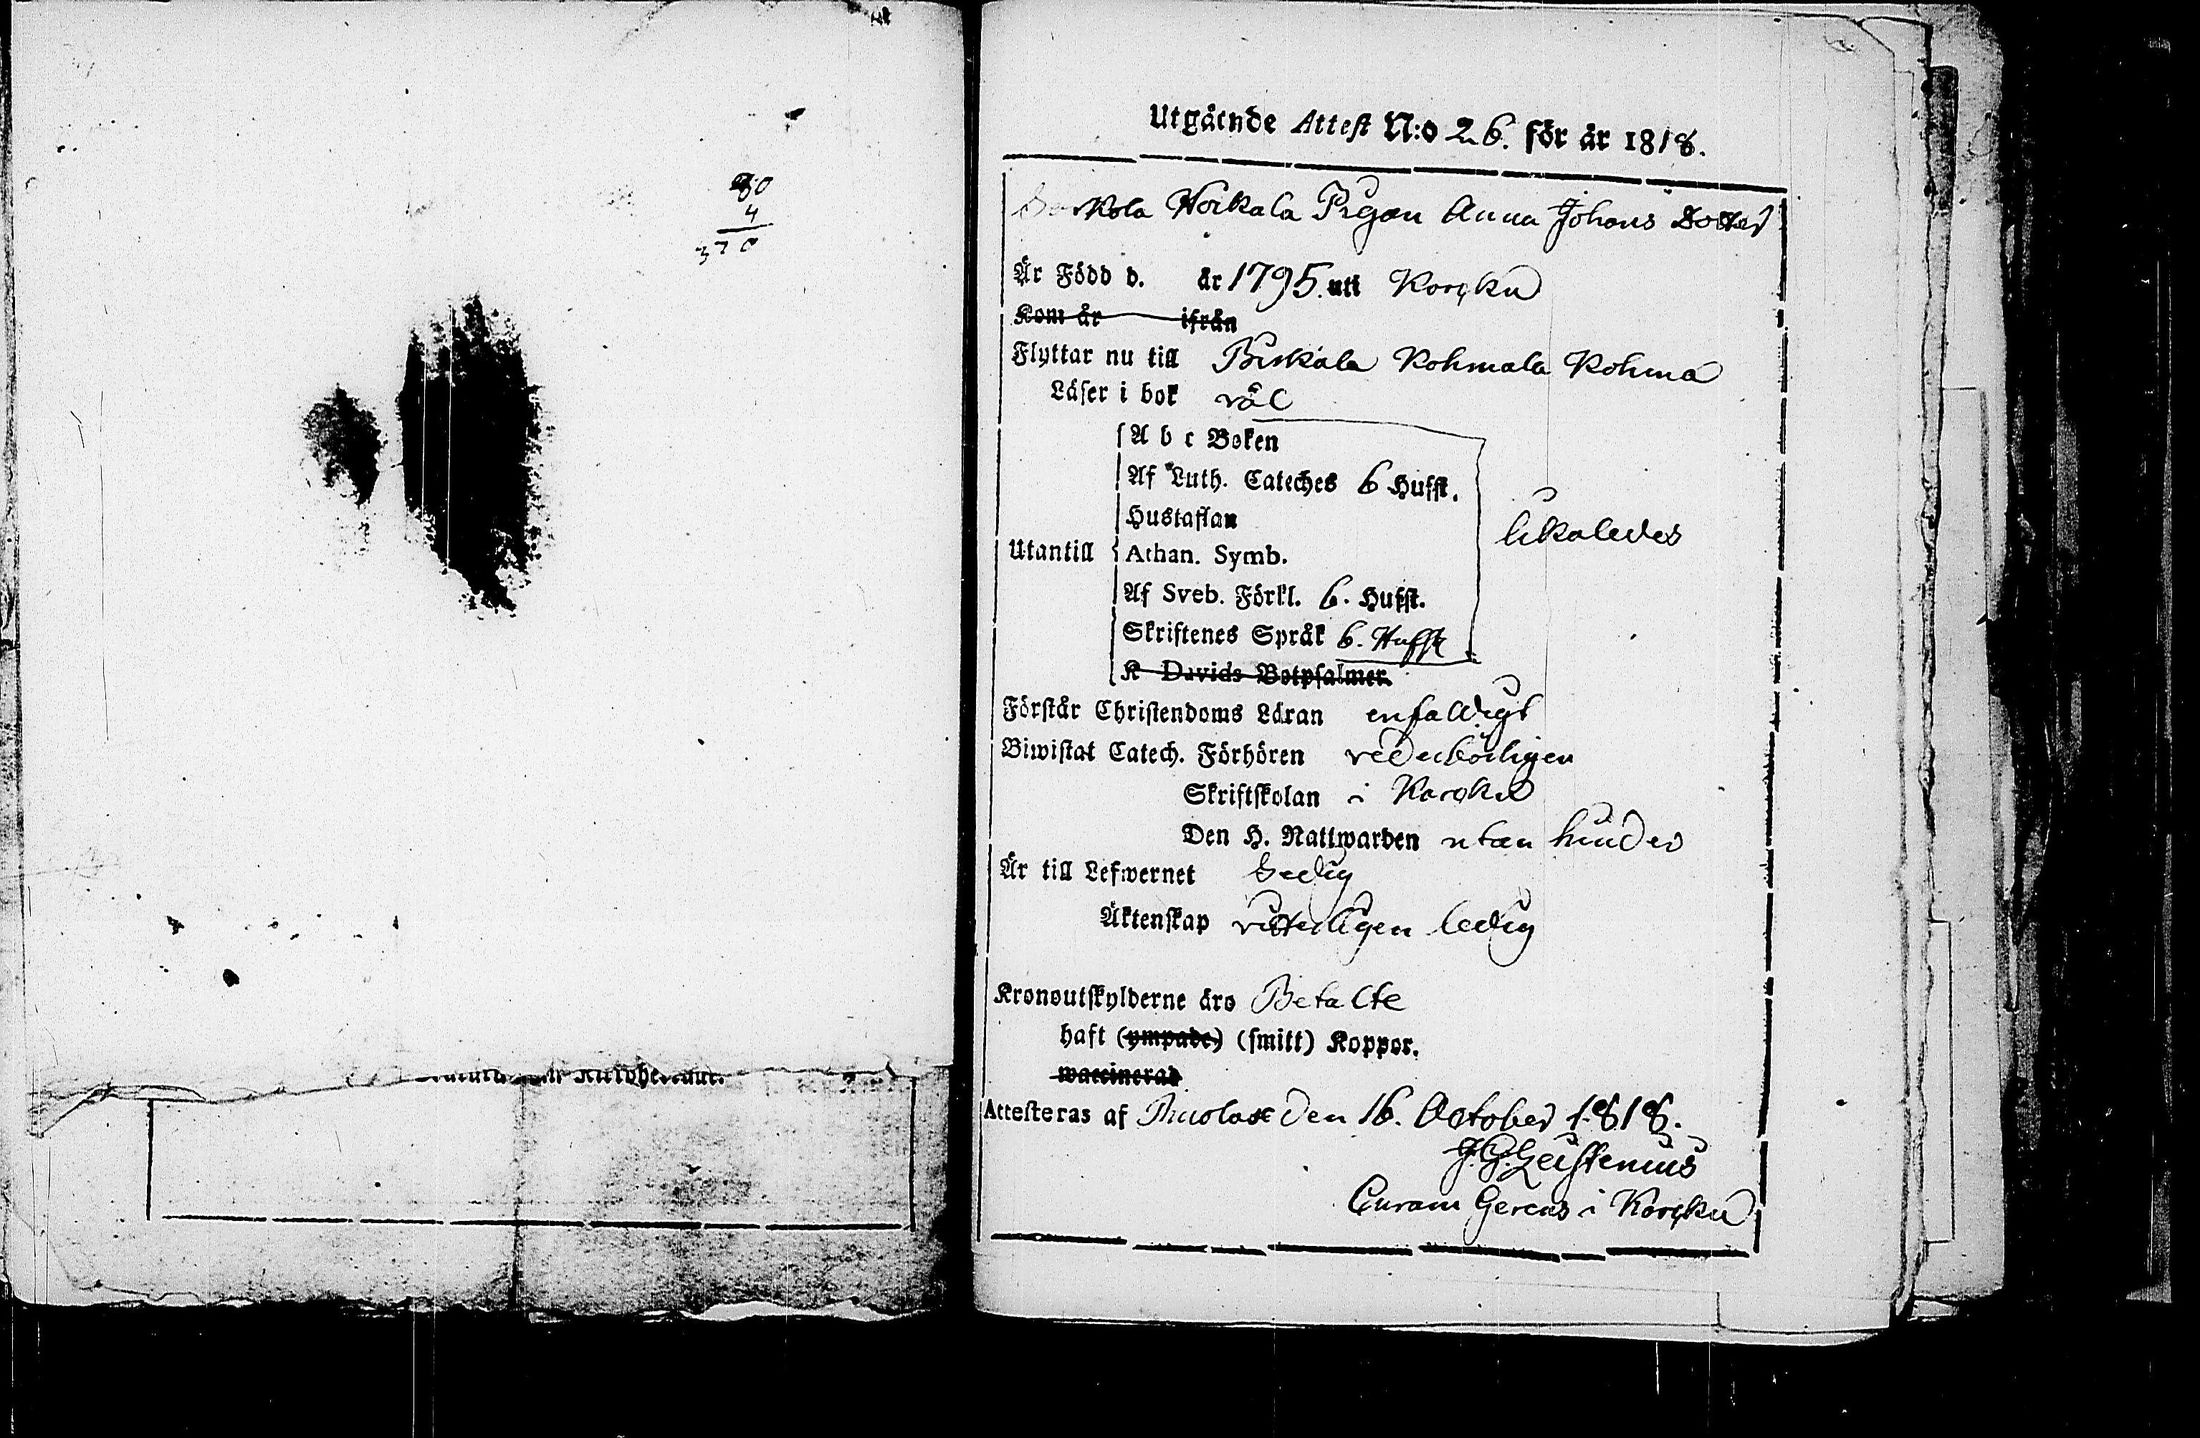 80
4
370
Utgående Attest N:o 26. för år 1818.
Kola Hoikala Pigan Anna Johans Dotter
Är Född d. år 1795. uti Karcku
Kom år ifrån
Flyttar nu till Kohmala Kohma
Läser i bok väl
A b c Boken
Af Luth. Cateches 6 Hufst.
Hustaflan
likaledes
Utantill Athan. Symb.
Af Sveb. Förkl. 6. Hufst.
Skriftenes Språk 6. Hufst
K Davids Botpsalmer.
Förstår Christendoms Läran enfaldigt
Biwistat Catech. Förhören vederbörligen
Skriftskolan i Karcku
Den H. Nattwarden utan hinder
Är till Lefwernet Sedig
Äktenskap vitterligen ledig
Kronoutskylderne äro Betalte
haft (ympade) (smitt) Koppor.
waccinerad
Attesteras af den 16. October 1818.
Curam Gerens i Karcku